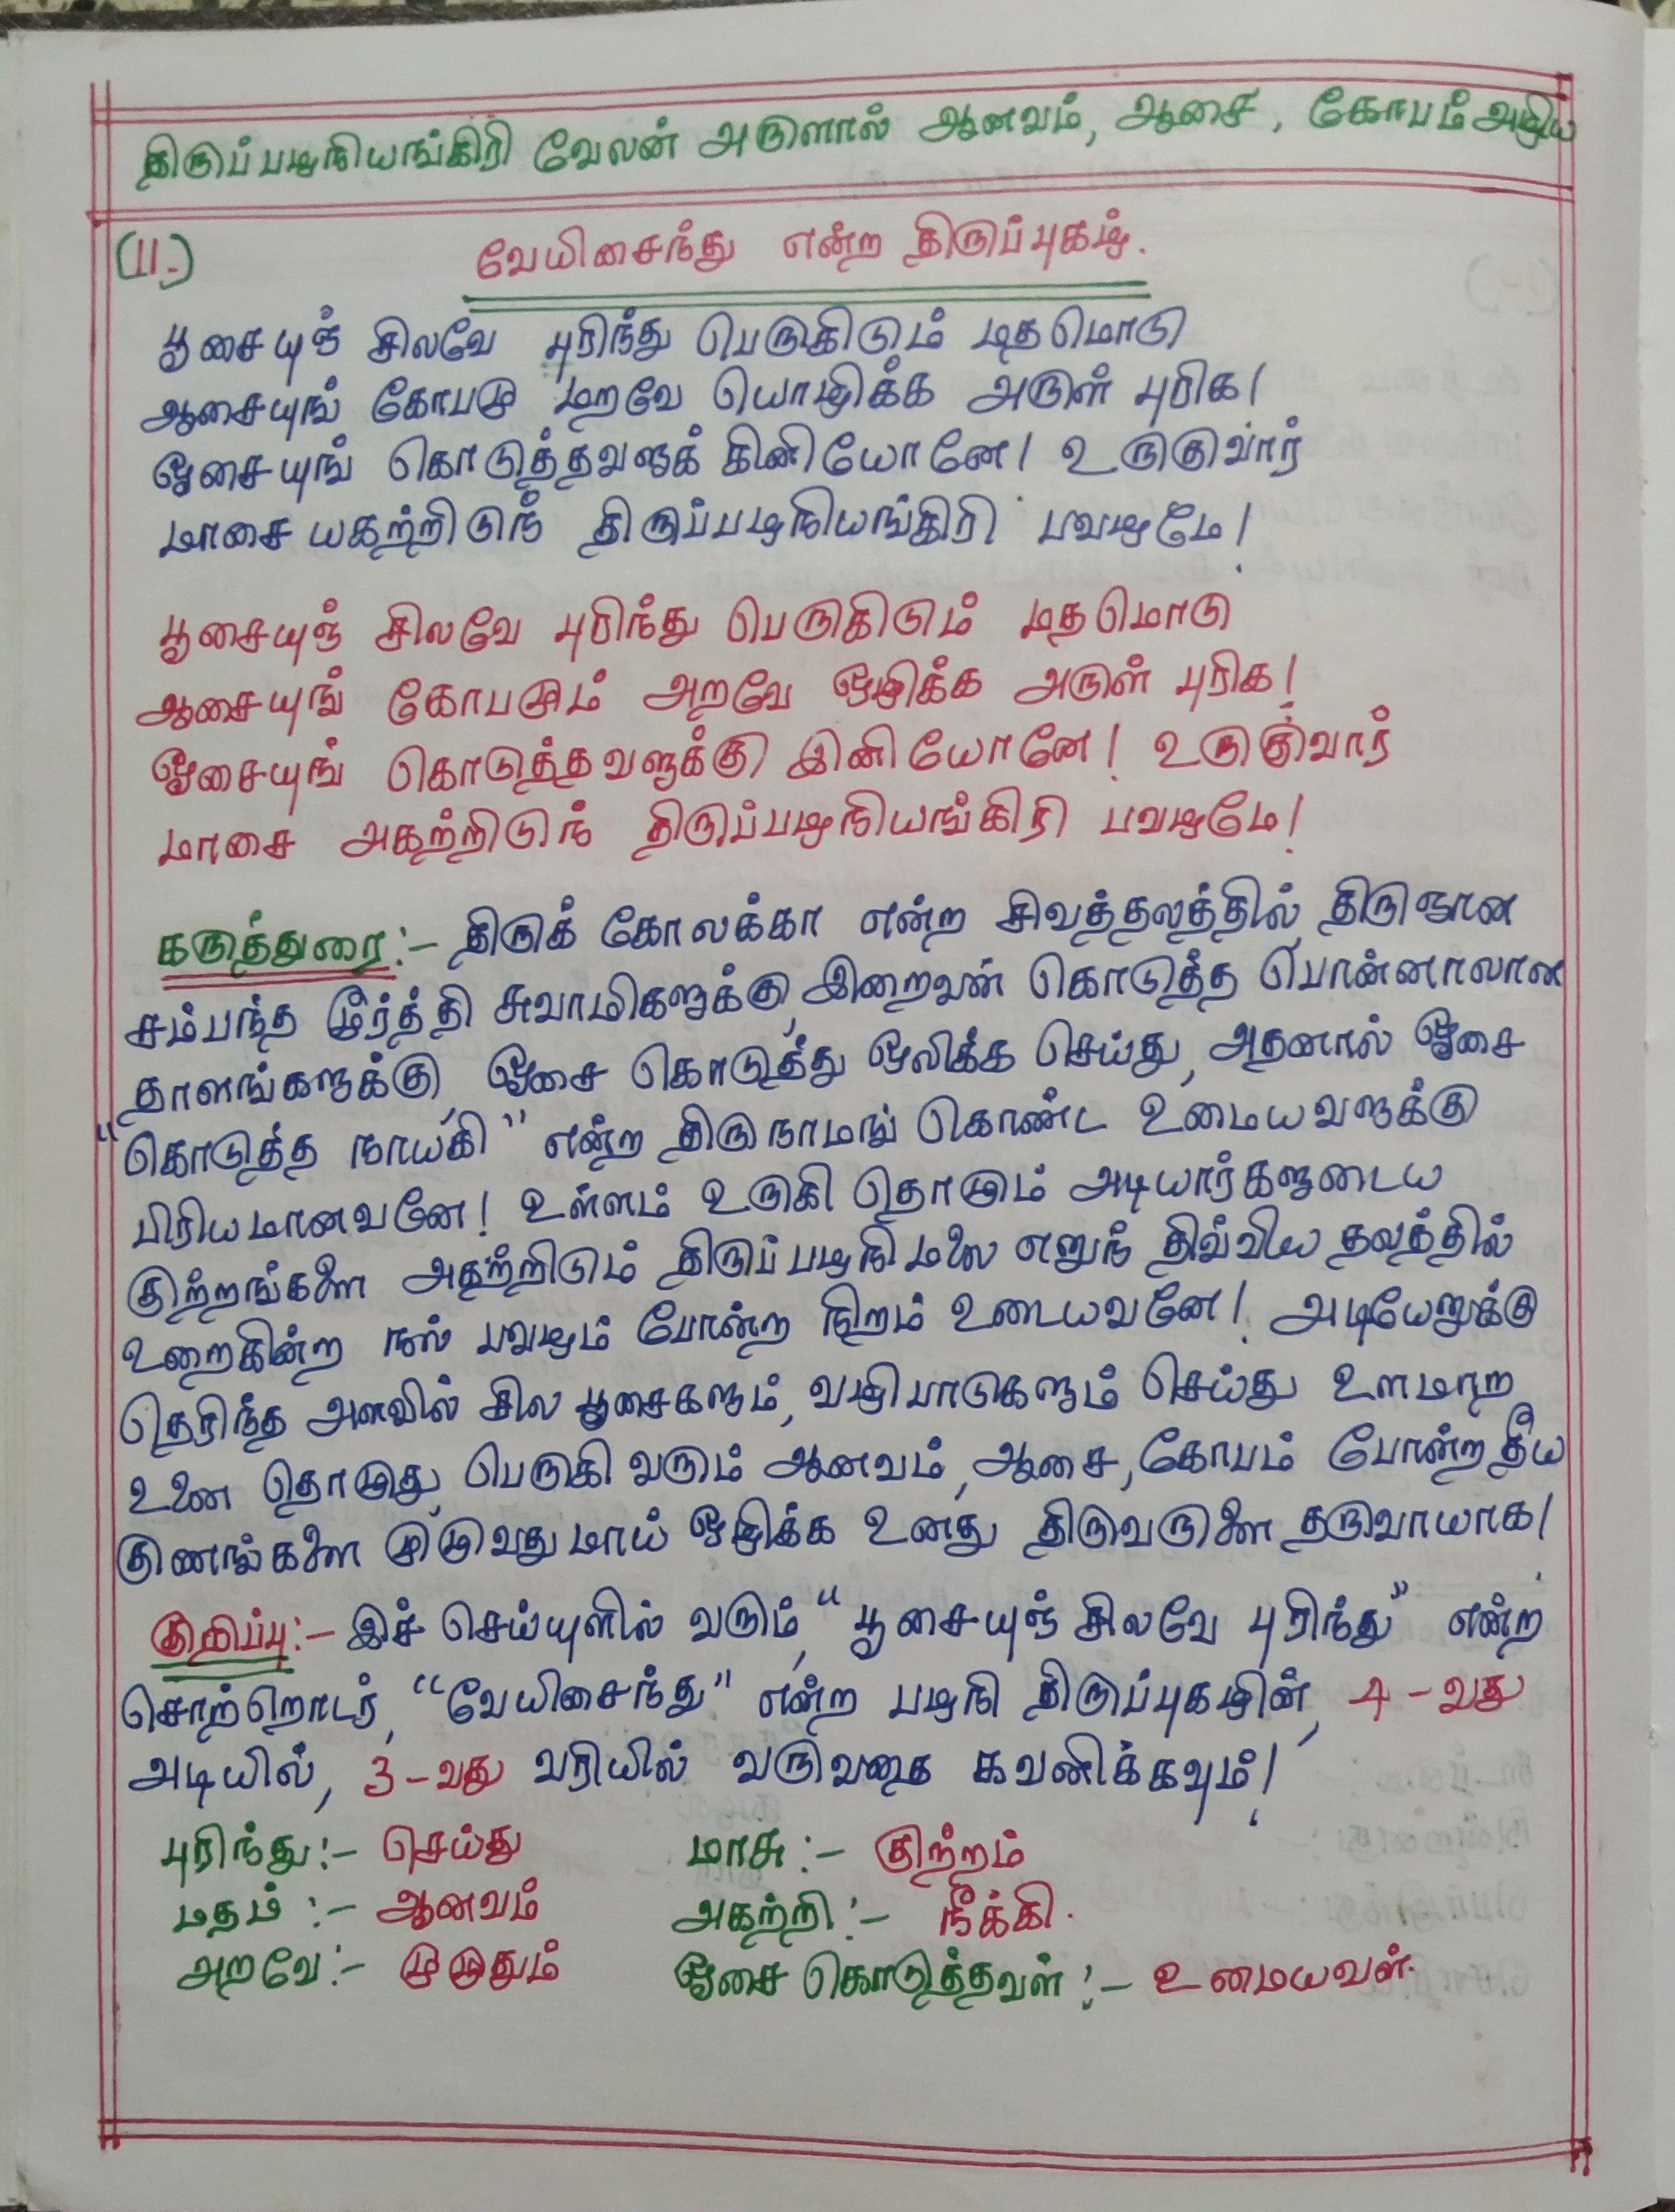 திருப்பழநியங்கிரி வேலன் அருளால் ஆனவம், ஆசை, கோபம் அழிய
(11.)
வேயிசைந்து என்ற திருப்புகழ்.
பூசையுஞ் சிலவே புரிந்து பெருகிடும் மதமொடு
ஆசையுங் கோபமு மறவே யொழிக்க அருள் புரிக!
ஓசையுங் கொடுத்தவளுக் கினியோனே! உருகுவார்
மாசை யகற்றிடுந் திருப்பழநியங்கிரி பவழமே!
பூசையுஞ் சிலவே புரிந்து பெருகிடும் மதமொடு
ஆசையுங் கோபமும் அறவே ஒழிக்க அருள் புரிக!
ஓசையுங் கொடுத்தவளுக்கு இனியோனே! உருகுவார்
மாசை அகற்றிடுந் திருப்பழநியங்கிரி பவழமே!
கருத்துரை:- திருக் கோலக்கா என்ற சிவத்தலத்தில், திருஞான
சம்பந்த மூர்த்தி சுவாமிகளுக்கு, இறைவன் கொடுத்த பொன்னாலான
தாளங்களுக்கு, ஓசை கொடுத்து ஒலிக்க செய்து, அதனால் ஓசை
"கொடுத்த நாயகி" என்ற திருநாமங் கொண்ட உமையவளுக்கு
பிரியமானவனே! உள்ளம் உருகி தொழும் அடியார்களுடைய
குற்றங்களை அகற்றிடும் திருப்பழநிமலை எனுந் திவ்விய தலத்தில்
உறைகின்ற நல் பவழம் போன்ற நிறம் உடையவனே! அடியேனுக்கு
தெரிந்த அளவில் சில பூசைகளும், வழிபாடுகளும் செய்து உளமாற
உனை தொழுது, பெருகி வரும் ஆனவம், ஆசை, கோபம் போன்ற தீய
குணங்களை முழுவதுமாய் ஒழிக்க உனது திருவருளை தருவாயாக!
குறிப்பு:- இச் செய்யுளில் வரும், "பூசையுஞ் சிலவே புரிந்து" என்ற
சொற்றொடர், "வேயிசைந்து" என்ற பழநி திருப்புகழின், 4-வது
அடியில், 3-வது வரியில் வருவதை கவனிக்கவும்!
புரிந்து:- செய்து மாசு:- குற்றம்
மதம்:- ஆனவம் அகற்றி:- நீக்கி.
அறவே:- முழுதும் ஓசை கொடுத்தவள்:- உமையவள்.